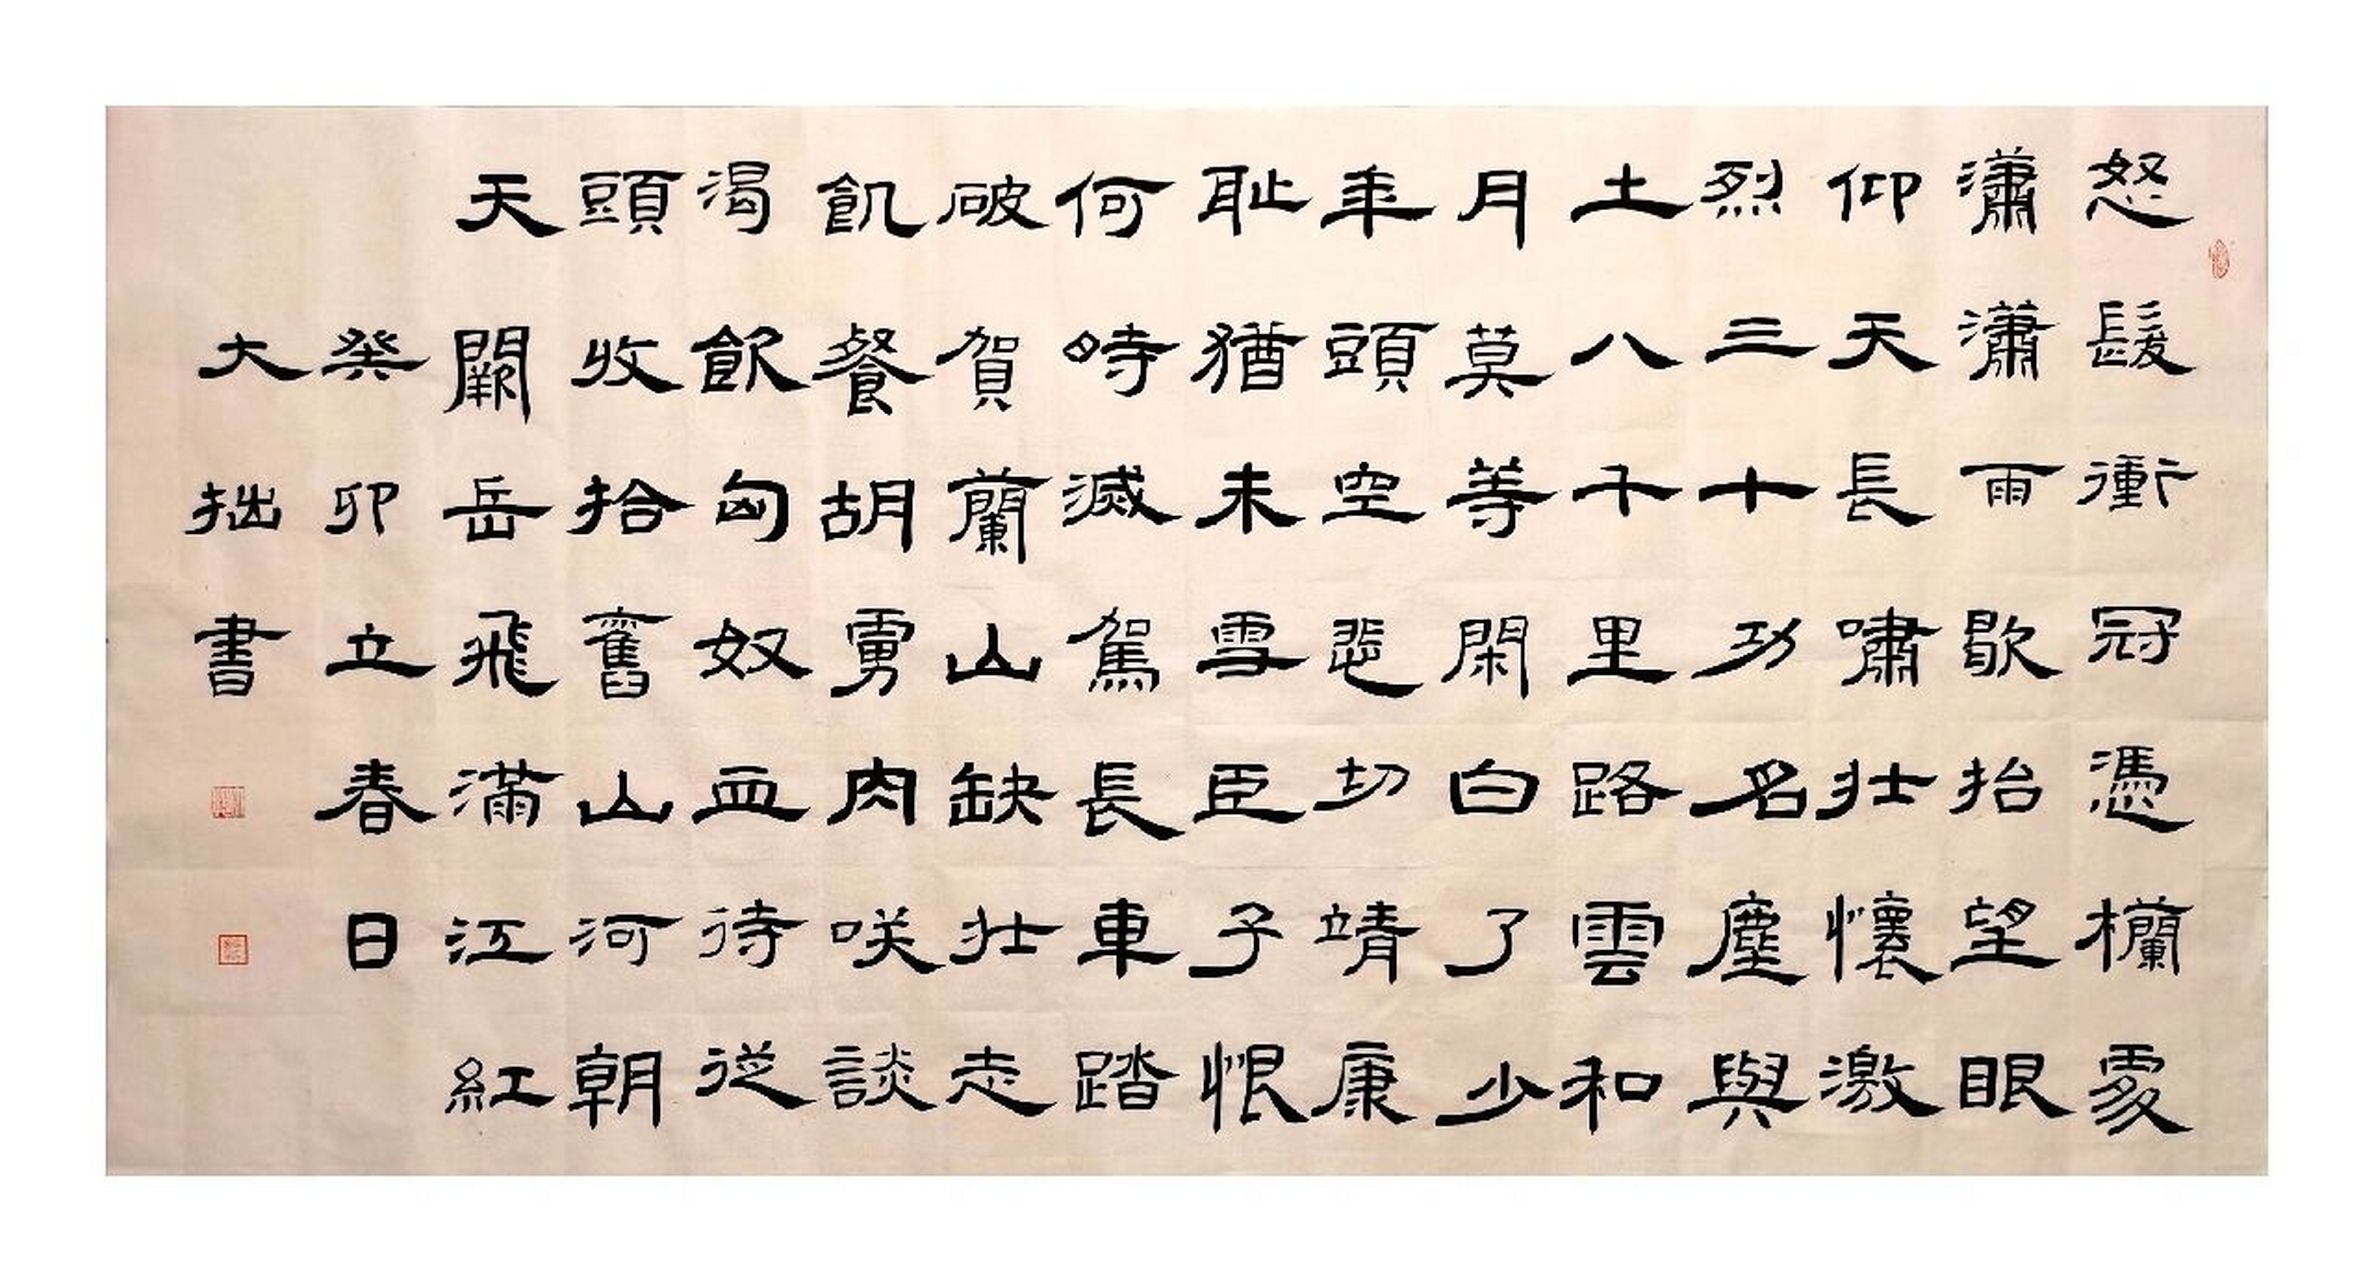 怒髮衝冠憑欄處
瀟瀟雨歇抬望眼
仰天長嘯壯懷激
烈三十功名塵與
土八千里路雲和
月莫等閑白了少
年頭空悲切靖康
耻猶未雪臣子恨
何時滅駕長車踏
破賀蘭山缺壯志
飢餐胡虜肉咲談
渴飲匈奴血待從
頭收拾舊山河朝
天闕岳飛滿江紅
癸卯立春日
大拙書